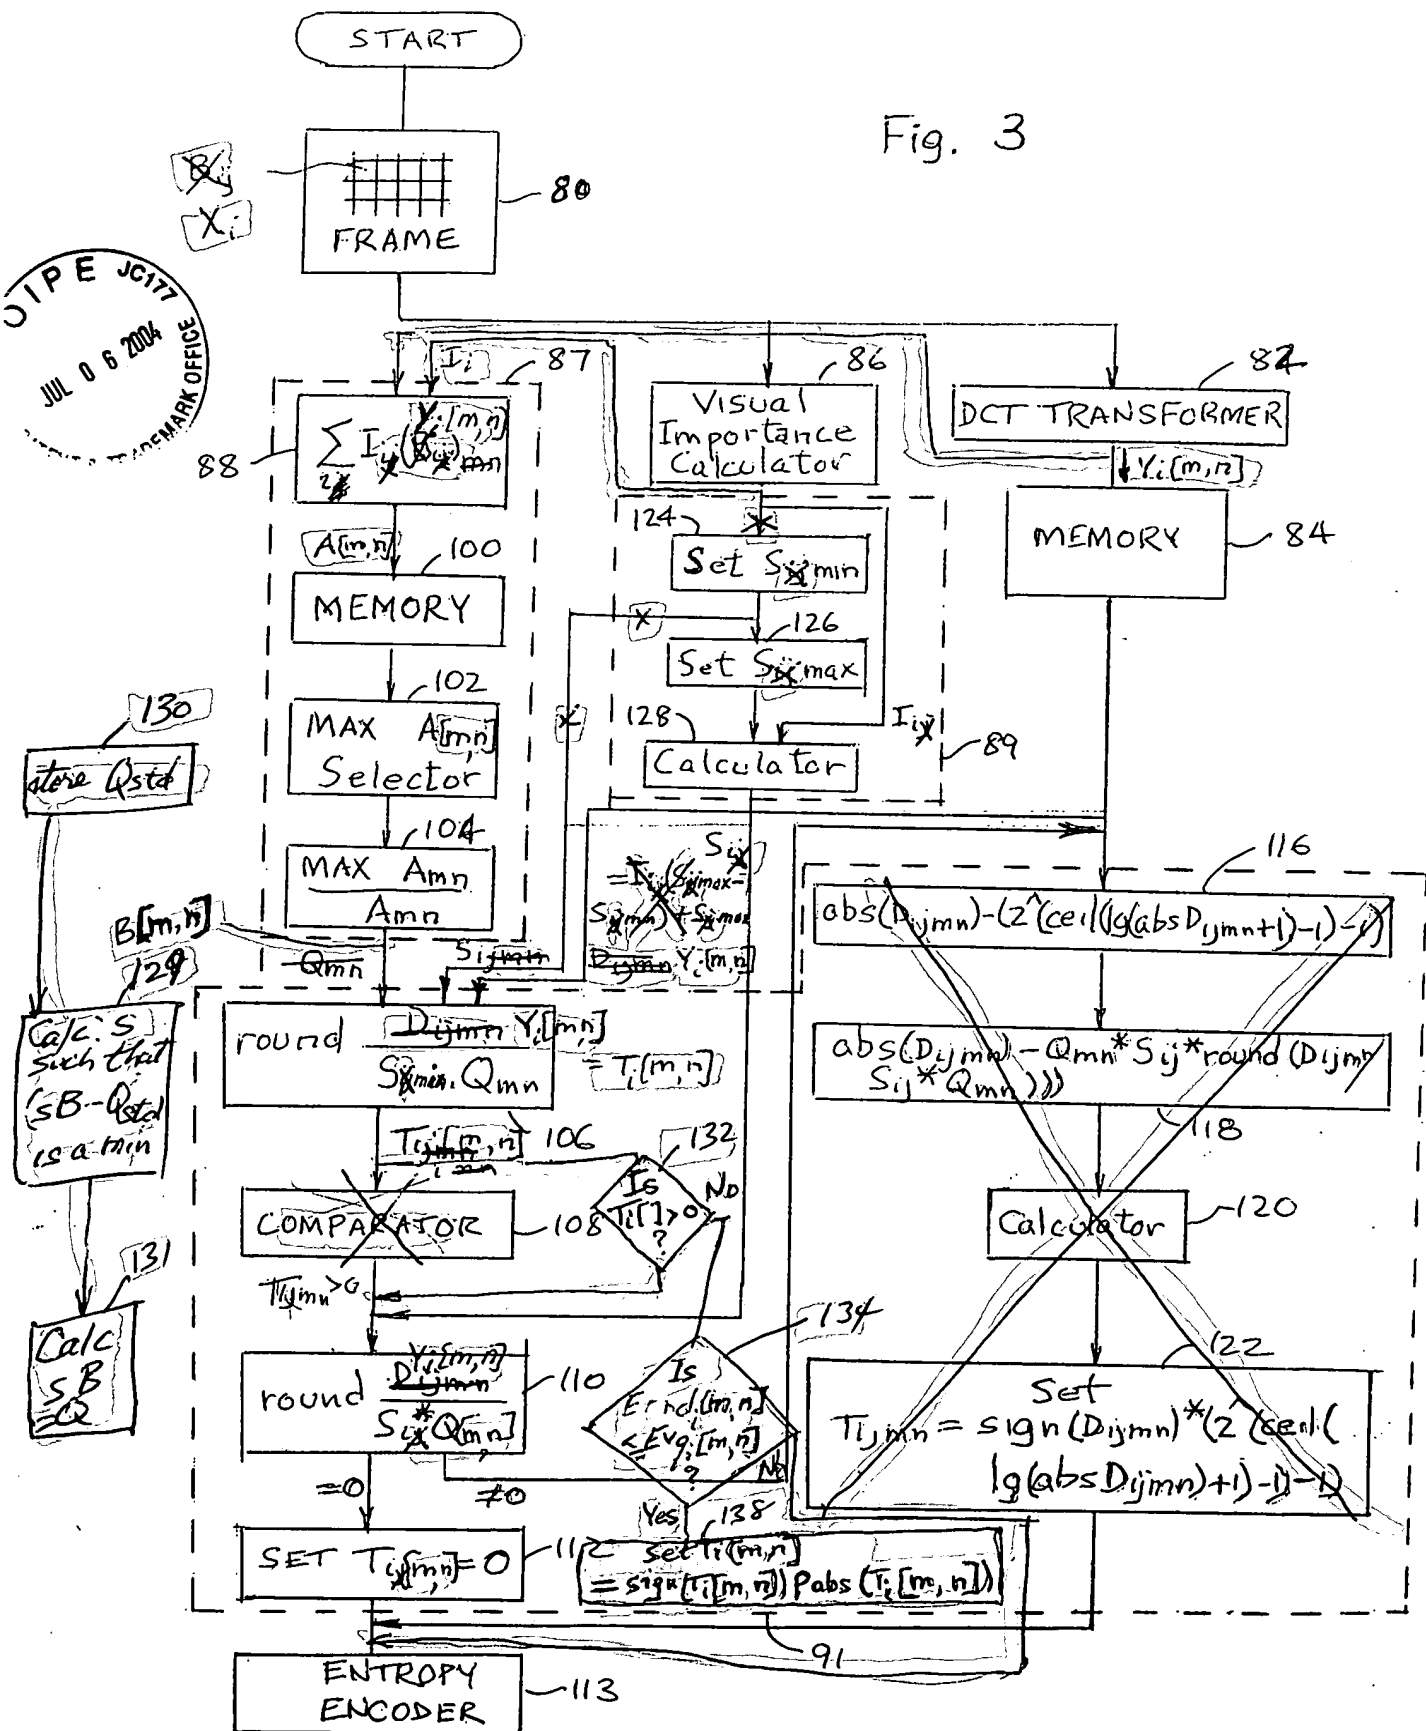 START
Fig. 3
Bj
Xi
80
FRAME
OIPE JC177
JUL 0 6 2004
TRADEMARK OFFICE
Ii
87
86
82
Visual
Importance
Calculator
DCT TRANSFORMER
Yi[m,n]
88
Yi[m,n]
A[m,n]
100
MEMORY
124
Set Sijmin
MEMORY
84
126
Set Sijmax
102
MAX A[m,n]
Selector
128
Calculator
Iij
89
130
store Qstd
104
MAX Amn
Amn
Sij
= Iij(Sijmax-
Sijmin) + Sijmax
116
abs(Dijmn)-(2^(ceil(lg(absDijmn+1)-1)-1)
B[m,n]
Qmn
Sijmin
Dijmn Yi[m,n]
129
Calc. s
such that
(sB-Qstd
is a min
round Dijmn Yi[m,n]
Sijmin. Qmn
= Ti[m,n]
abs(Dijmn)-Qmn*Sij*round(Dijmn/
Sij*Qmn)))
118
106
132
Is
Ti[]>0
?
No
COMPARATOR
108
Calculator
120
131
Calc
sB
=Q
Tijmn>0
134
Yi[m,n]
round Dijmn
Sij*Q[m,n]
110
Is
Erndi[m,n]
≤Evqi[m,n]
?
No
122
Set
Tijmn = sign(Dijmn)*(2^(ceil(
lg(absDijmn)+1)-1)-1)
=0
≠0
Yes
138
SET Tij[m,n]=0
112
set Ti[m,n]
= sign(Ti[m,n]) Pabs(Ti[m,n])
91
ENTROPY
ENCODER
113